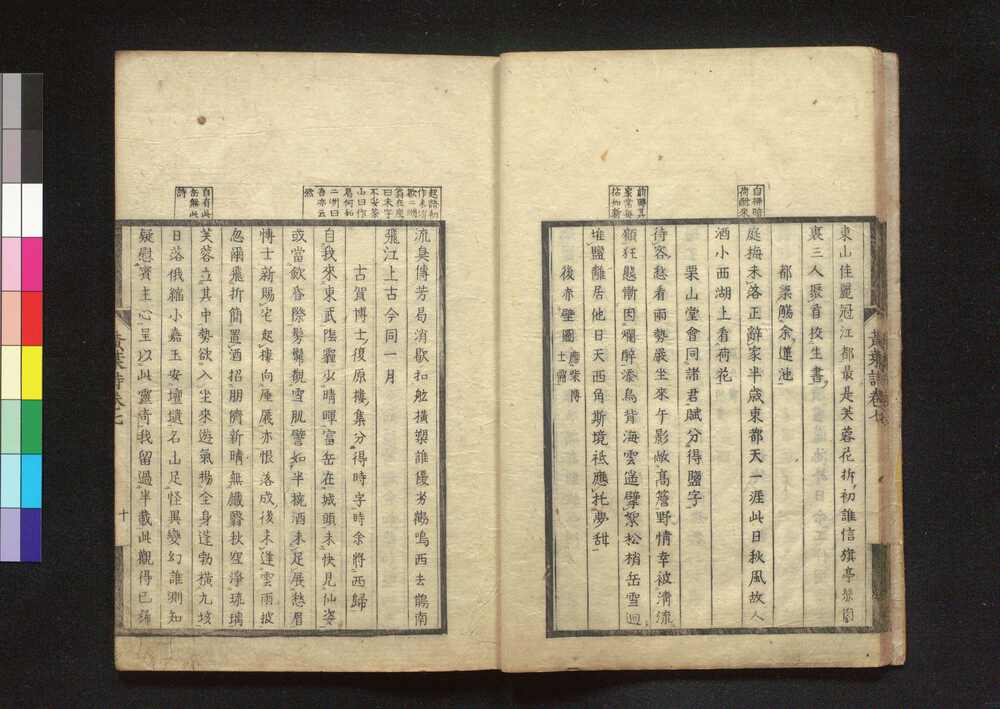 東山佳麗冠江都最是芙蓉花拆初誰信旗亭禁園
裏三人聚首校生書
都梁觴余蓮池
庭梅未落正辭家半歳東都天一涯此日秋風故人
酒小西湖上看荷花
栗山堂會同諸君賦分得鹽字
待客愁看雨勢嚴坐來午影敞高簷野情幸被淸流
顧狂態慚因爛醉添鳥背海雲遙擘絮松梢岳雪迥
堆鹽離居他日天西角斯境祗應托夢甜
後赤壁圖應柴博士需
黃葉詩卷七
流臭傳芳曷消歇扣舷橫槊誰優劣鸛鳴西去鵲南
飛江上古今同一月
古賀博士復原樓集分得時字時余將西歸
自我來東武陰霾少晴暉富岳在城頭未快見仙姿
或當飮昏際髣髴觀雪肌譬如半椀酒未足展愁眉
博士新賜宅起樓向厓嚴亦恨落成後未逢雲雨披
忽爾飛折簡置酒招朋儕新晴無纖翳秋空淨琉璃
芙蓉立其中勢欲入坐來遊氣揚全身蓬勃橫九垓
日落俄縮小嘉玉安壇壝名山足怪異變幻誰測知
疑慰賓主心呈以此靈奇我留過半載此觀得已稀
十